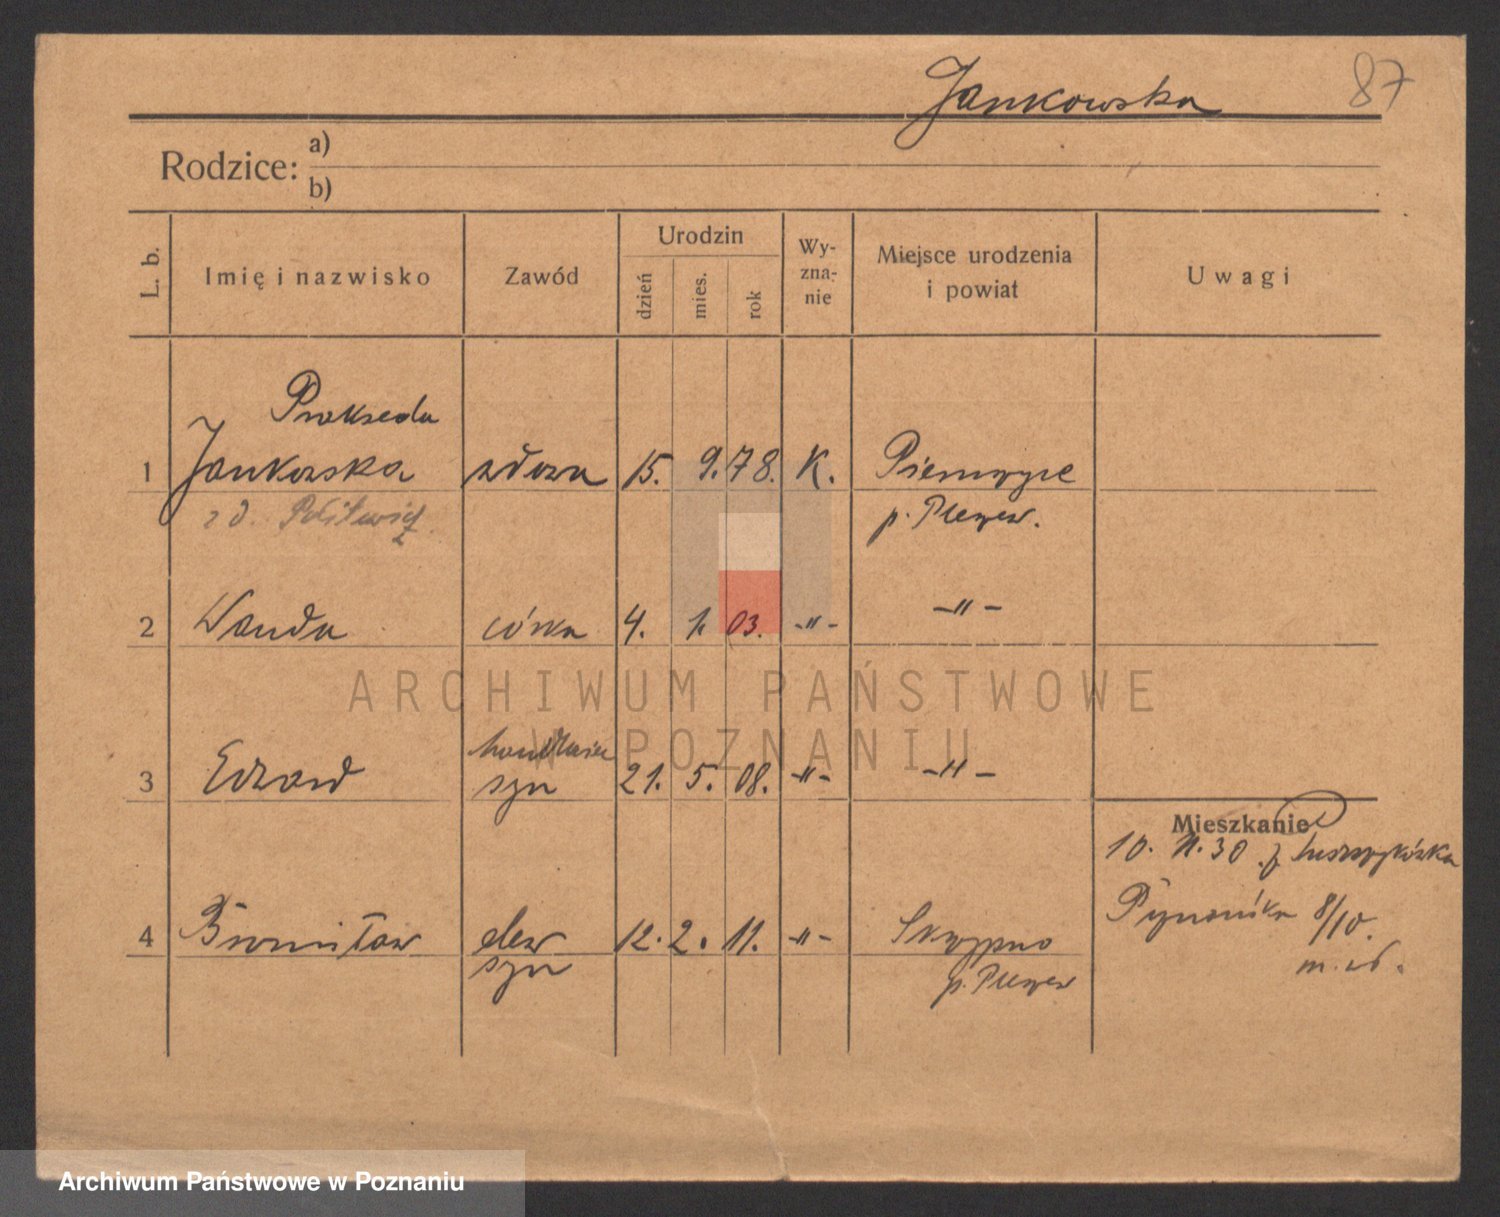 Jankowska 87
Rodzice: a)
b)
L. b.
Imię i nazwisko
Zawód
Urodzin
dzień
mies.
rok
Wy-
zna-
nie
Miejsce urodzenia
i powiat
Uwagi
Prakseda
1 Jankowska wdowa 15. 9. 78. K.
z d.
p. Pleszew.
2 Wanda córka 4. 1. 03. -"- -"-
3 Edward syn 21. 5. 08. -"- -"-
Mieszkanie
10. 11. 30
4 Bronisław elew 12. 2. 11. -"- 8/10.
syn p. Pleszew
ARCHIWUM PAŃSTWOWE
W POZNANIU
Archiwum Państwowe w Poznaniu